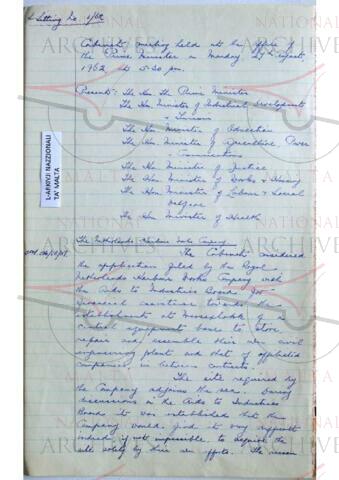 Sitting No.
Cabinet meeting held at the Office of
the Prime Minister on Monday, 27th August,
1962 at 5.30 pm.
Present: The Hon. The Prime Minister
The Hon. Minister of Industrial Development
& Tourism
The Hon. Minister of Education
The Hon. Minister of Agriculture, Power
& Communications
The Hon. Minister of Justice
The Hon. Minister of Works & Housing
The Hon. Minister of Labour & Social
Welfare
The Hon. Minister of Health
L-ARKIVJI NAZZJONALI
TA' MALTA
The Netherlands Harbour Works Company
The Cabinet considered
the application filed by the Royal
Netherlands Harbour Works Company with
the Aids to Industries Board for
financial assistance towards the
establishment at Marsaxlokk of a
central equipment base to store
repair and assemble their own civil
engineering plant and that of affiliated
companies, in between contracts.
The site required by
the Company adjoins the sea. During
discussions in the Aids to Industries
Board it was established that the
Company would find it very difficult
indeed, if not impossible to acquire the
site solely by their own efforts. The reason
NATIONAL
ARCHIVES